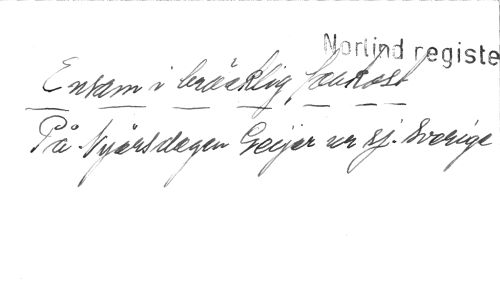 Norlind registe
Ensam i bräcklig farkost
På Nyårsdagen Geijer ur Sj. Sverige